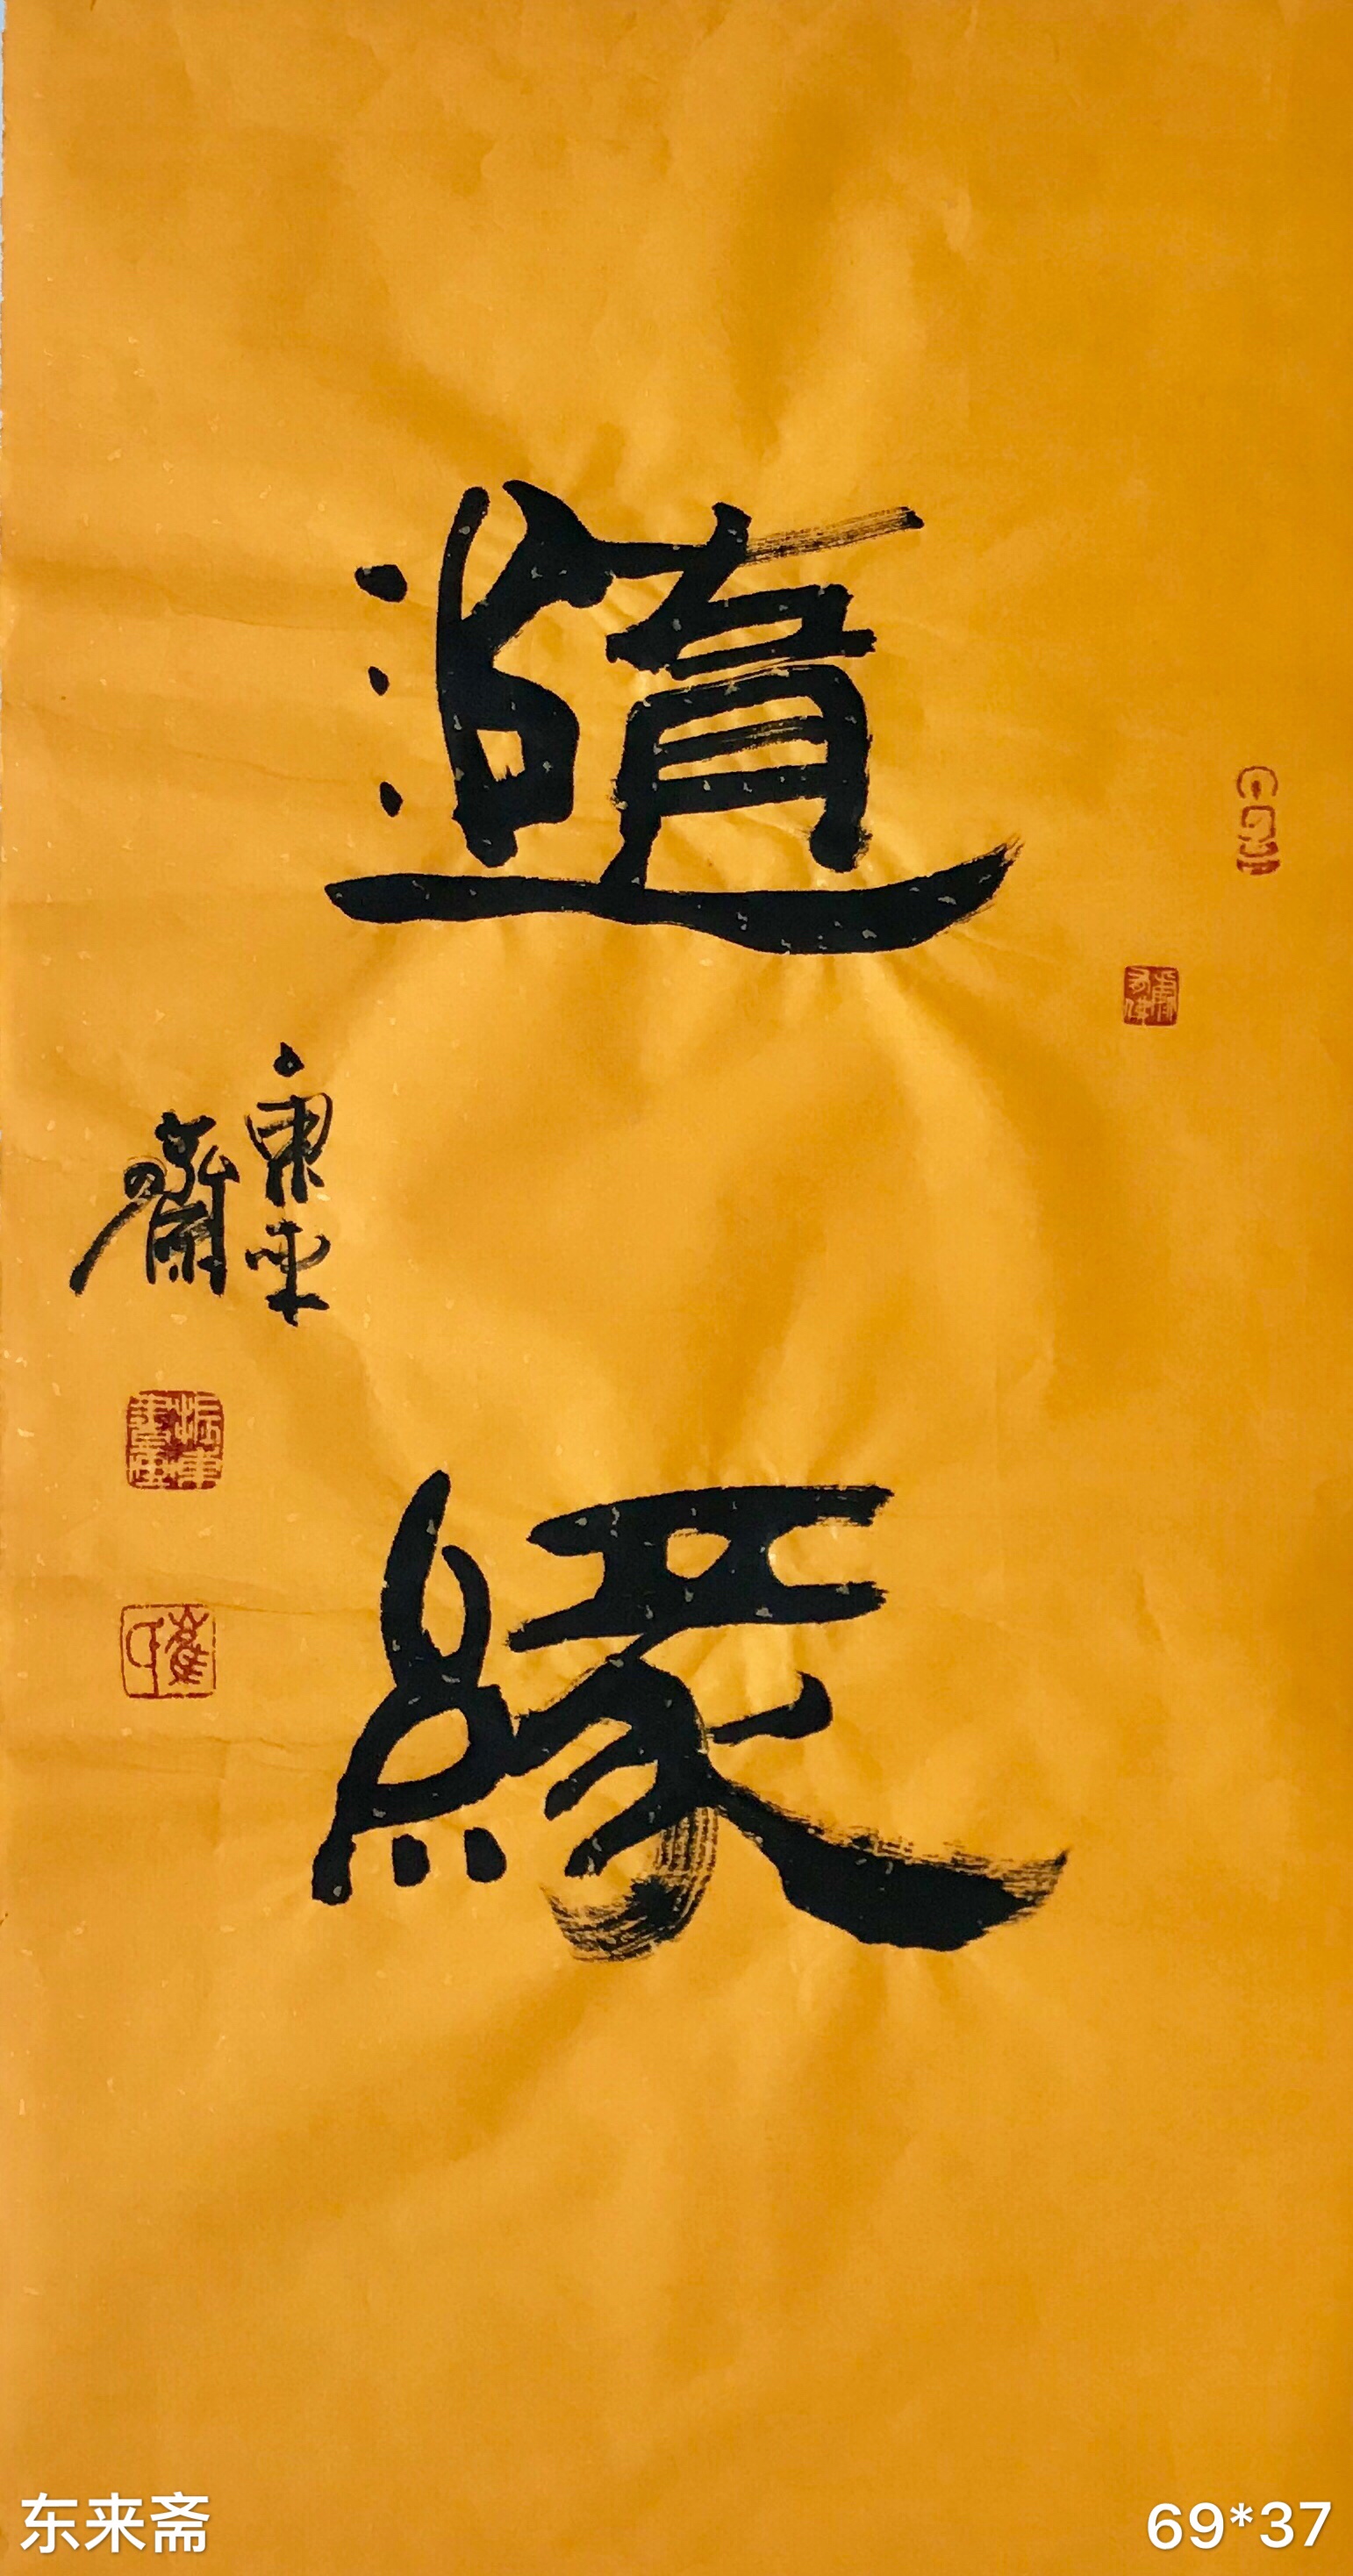 隨
緣
東來
齋
东来斋
69*37